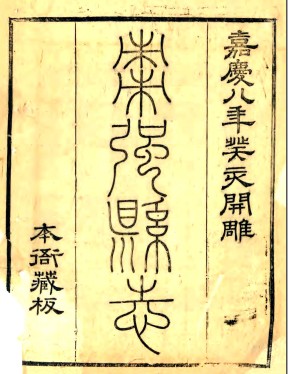 嘉慶八年癸亥開雕
棗強縣志
本衙藏板